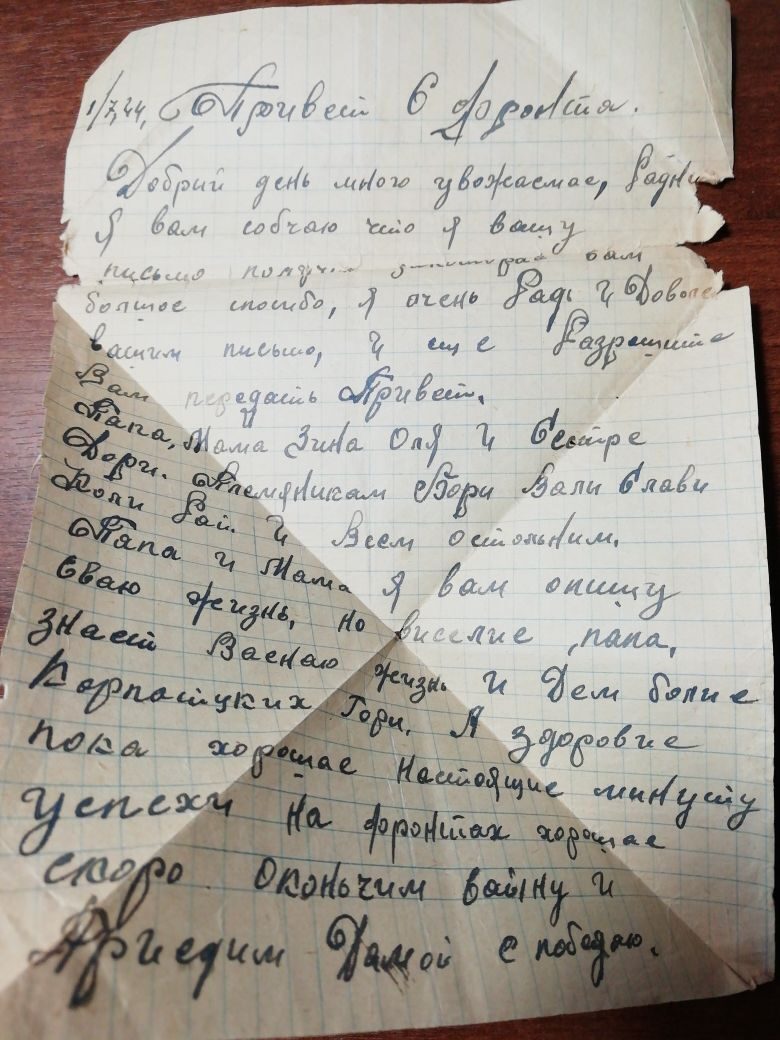 1/7,44, Привет С фронта.
Добрий день много увожаемае, Радни
Я вам собчаю что я вашу
письмо получил вам
болшое спосибо, я очень Радь и Доволе
вашим письмо, и еще Разрешите
Вам передать Привет.
Папа, Мама Зина Оля и Сестре
Дори. Племяникам Бори Вали Слави
Коли Раи. и Всем остольним.
Папа и Мама я вам опишу
Сваю жизнь, но виселие, папа,
знает Ваенаю жизнь и Дем болие
Карпатцких Гори. А здоровие
пока хорошае настоящие минуту
успехи на фронтах хорошае
скоро оконьчим вайну и
Приедим Дамой с победаю.